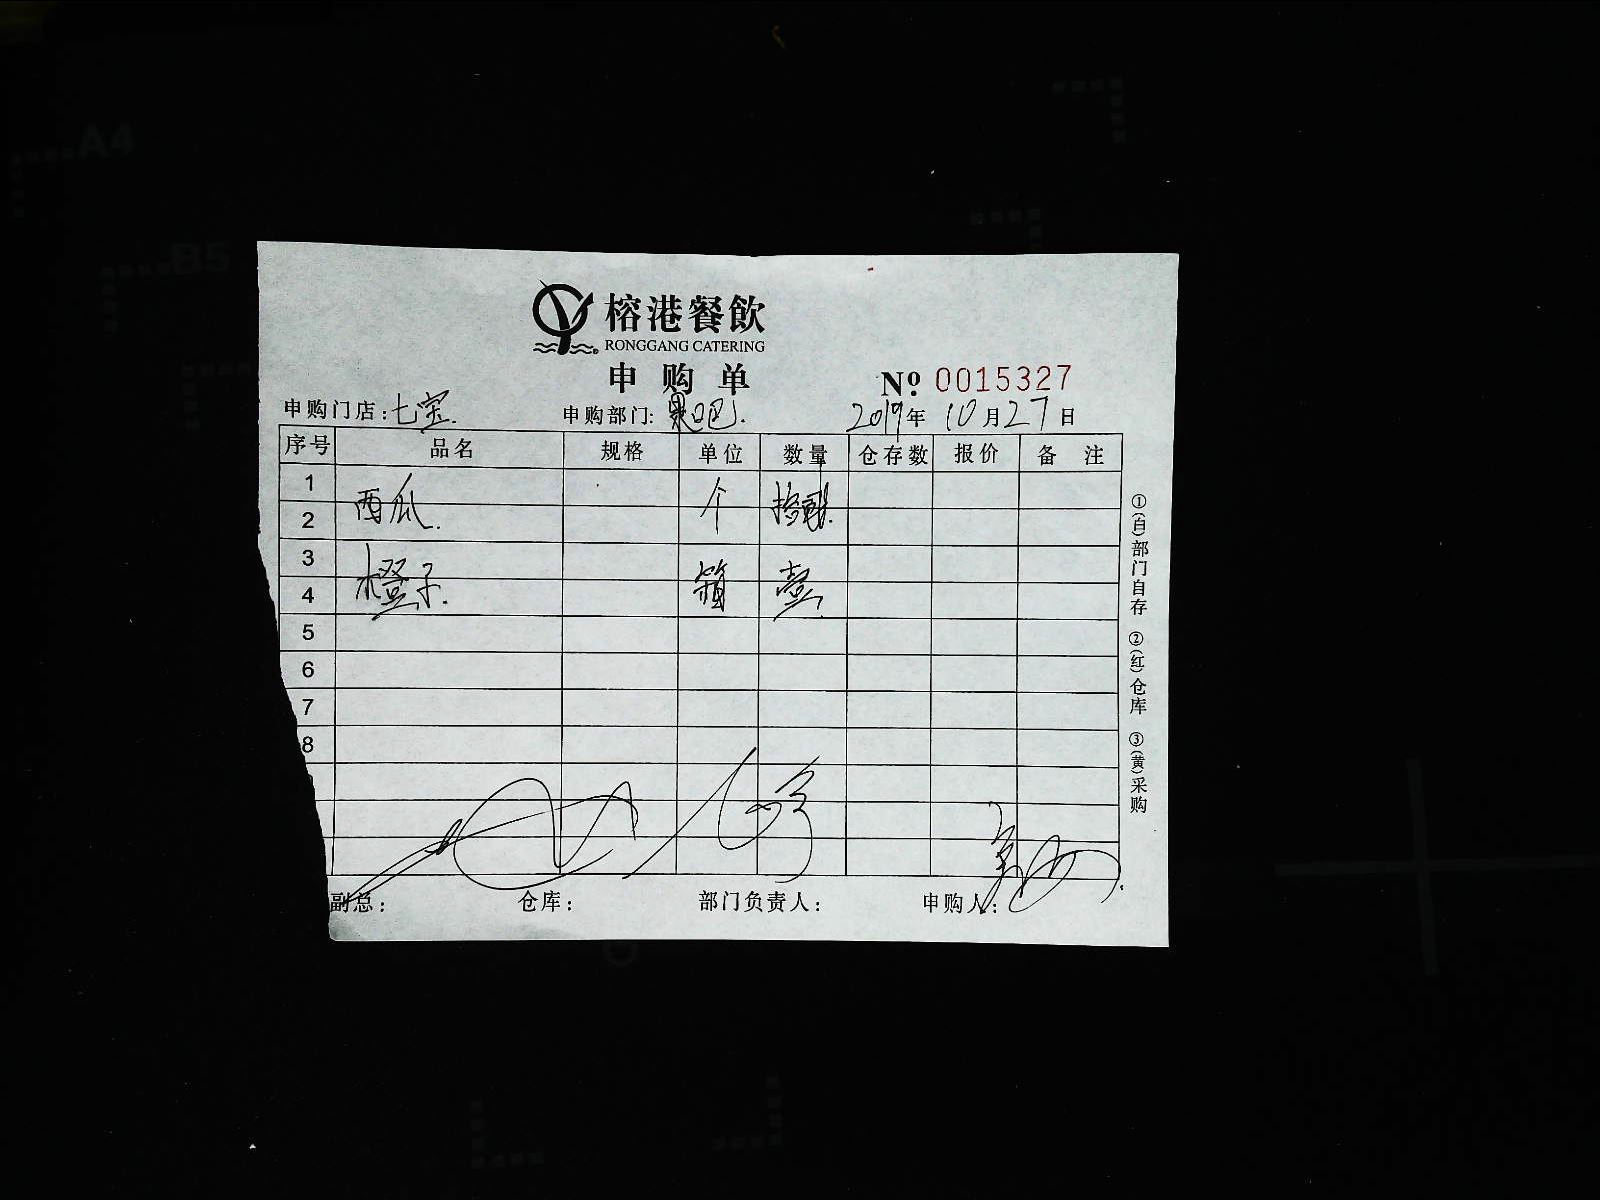 A4
B5
榕港餐飲
RONGGANG CATERING
申购单
№ 0015327
申购门店:七宝. 申购部门:果吧. 2019年10月27日
序号 品名 规格 单位 数量 仓存数 报价 备注
1
西瓜. 个
2
3
橙子. 箱 壹
4
5
6
7
8
副总: 仓库: 部门负责人: 申购人:
①(白)部门自存 ②(红)仓库 ③(黄)采购